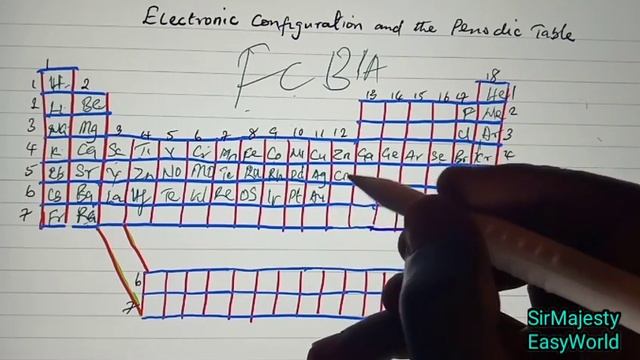 Electronic Configuration and the Periodic Table
1 18
1 H 2 13 14 15 16 17 He 1
2 Li Be F Ne 2
3 Na Mg 3 4 5 6 7 8 9 10 11 12 Cl Ar 3
4 K Ca Sc Ti V Cr Mn Fe Co Ni Cu Zn Ga Ge Ar Se Br Kr 4
5 Rb Sr Y Zn NO MO Te Ru Rh Pd Ag
6 Cs Ba La Hf Ta W Re OS Ir Pt Au
7 Fr Ra
6
7
SirMajesty
EasyWorld